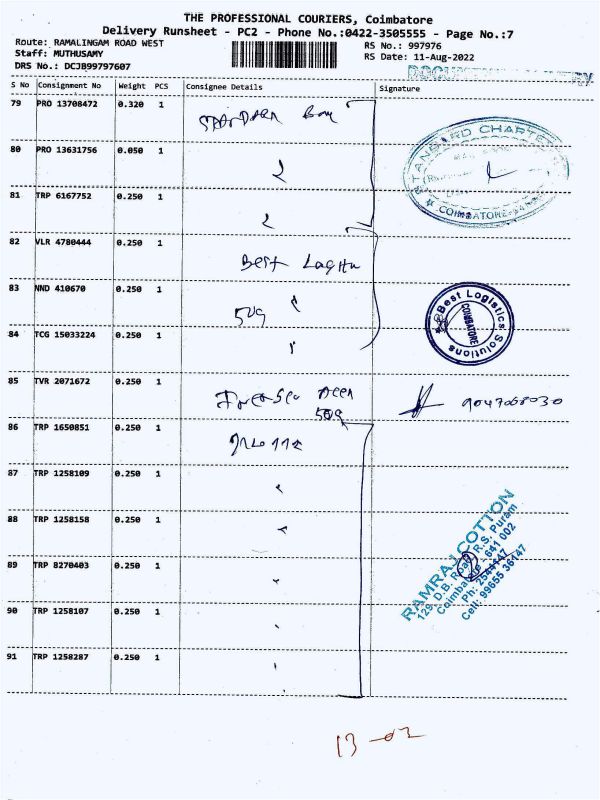 THE PROFESSIONAL COURIERS, Coimbatore
Delivery Runsheet - PC2 - Phone No.:0422-3505555 - Page No.:7
Route: RAMALINGAM ROAD WEST
RS No.: 997976
Staff: MUTHUSAMY
RS Date: 11-Aug-2022
DRS No.: DCJB99797607
S No Consignment No Weight PCS Consignee Details Signature
79 PRO 13708472 0.320 1
80 PRO 13631756 0.050 1
STANDARD CHARTERED
COIMBATORE
81 TRP 6167752 0.250 1
82 VLR 4780444 0.250 1
Best
83 NND 410670 0.250 1
509
Best Logistics Solutions
COIMBATORE
84 TCG 15033224 0.250 1
85 TVR 2071672 0.250 1
509
86 TRP 1650851 0.250 1
87 TRP 1258109 0.250 1
88 TRP 1258158 0.250 1
89 TRP 8270403 0.250 1
90 TRP 1258107 0.250 1
91 TRP 1258287 0.250 1
RAMRAJ COTTON
129, D.B. Road, R.S. Puram
Coimbatore - 641 002
Ph: 2544147
Cell: 99655 36147
13-02